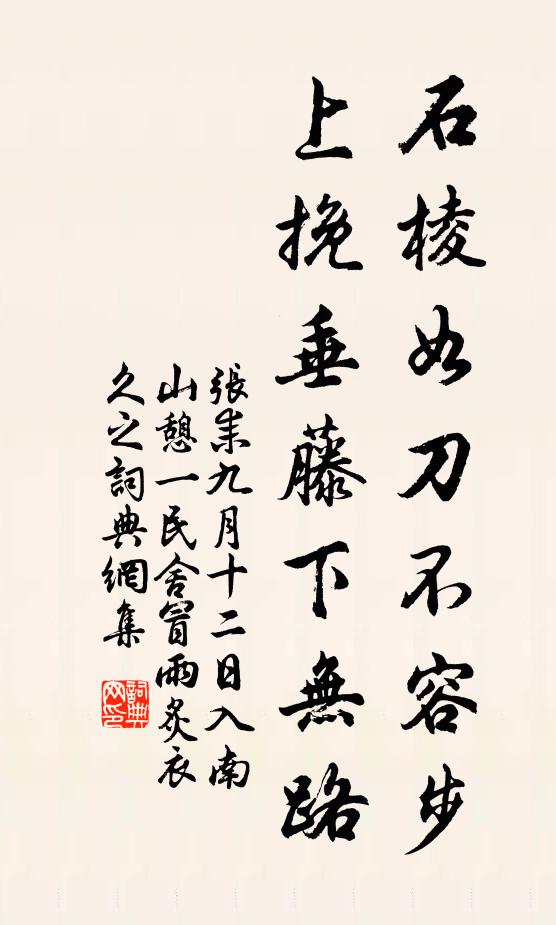 石棱如刀不容步
上挽垂藤下無路
張耒九月十二日入南
山憩一民舍冒雨炙衣
久之詞典網集
詞典
网印